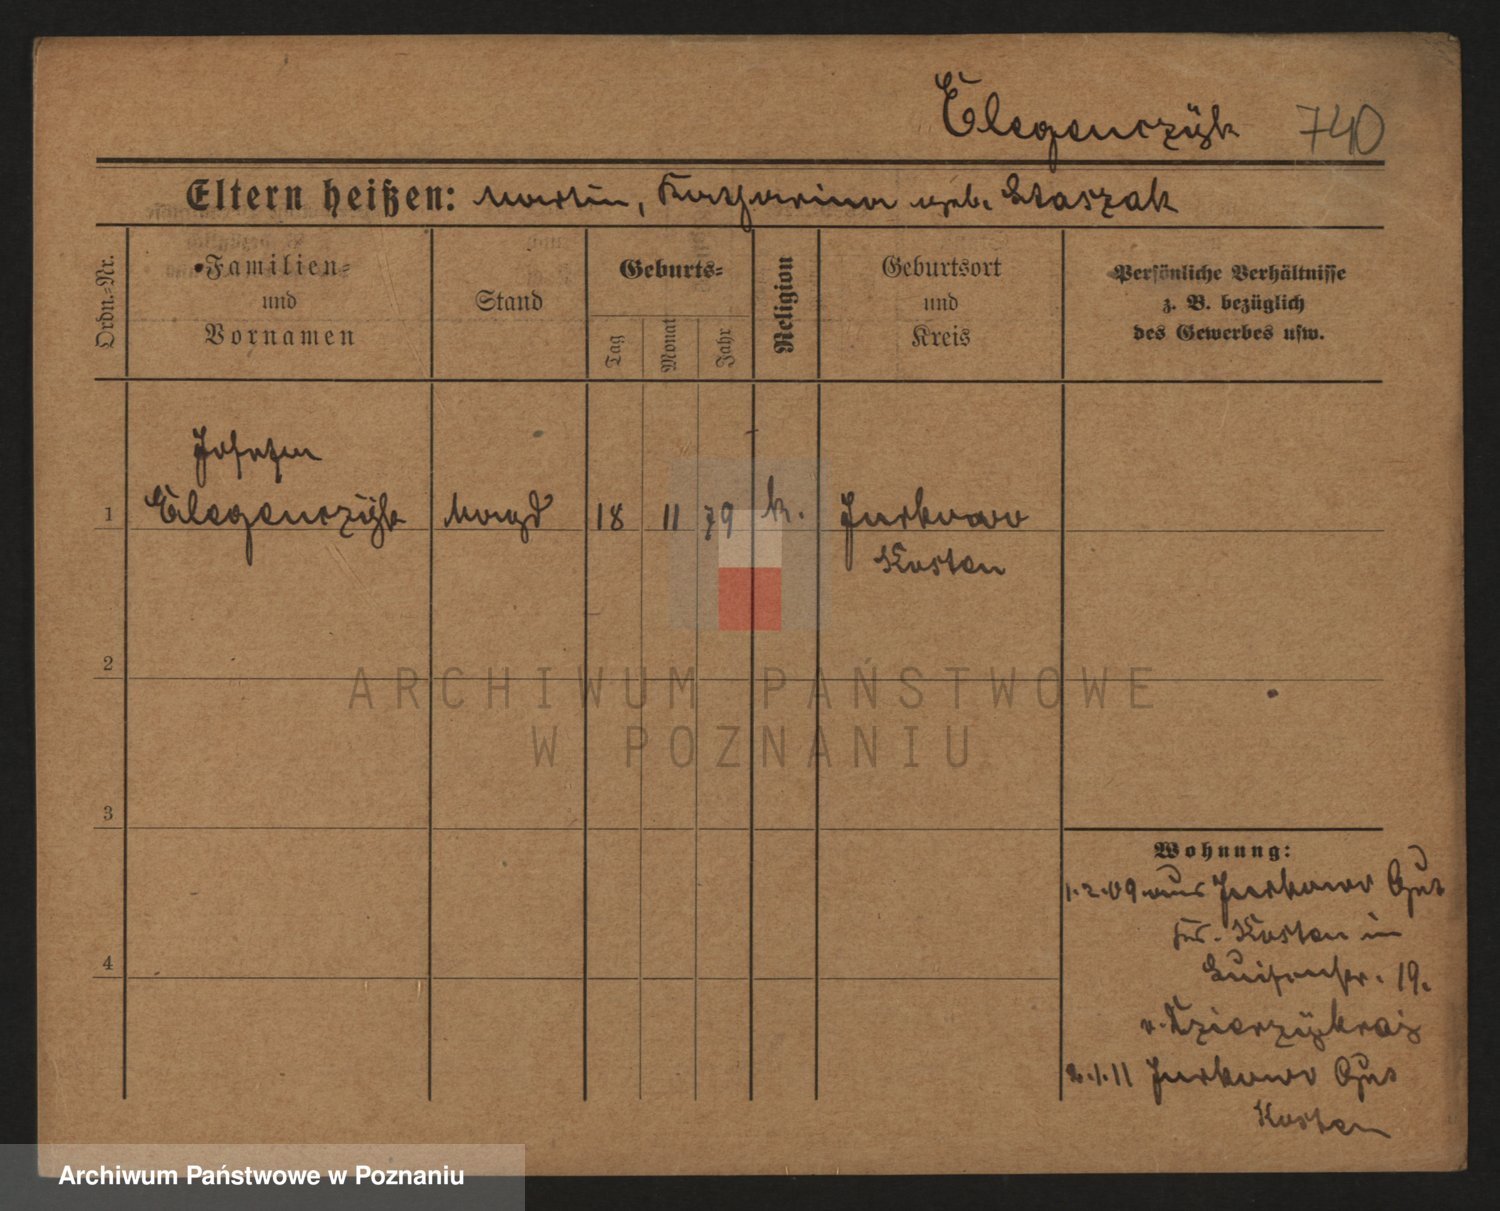 Elegenczÿk 740
Eltern heißen: Martin, Katharina geb. Staszak
Ordn.-Nr.
Familien-
und
Vornamen
Stand
Geburts-
Tag
Monat
Jahr
Religion
Geburtsort
und
Kreis
Persönliche Verhältnisse
z. B. bezüglich
des Gewerbes usw.
Josefa
1 Elegenczÿk Magd 18 11 79 k. Jurkowo
Kosten
2
3
4
Wohnung:
1.2.09 aus Jurkowo Gut
Kr. Kosten in
Luisenstr. 19.
v. Dzierzÿkraj
2.1.11 Jurkowo Gut
Kosten
ARCHIWUM PAŃSTWOWE
W POZNANIU
Archiwum Państwowe w Poznaniu